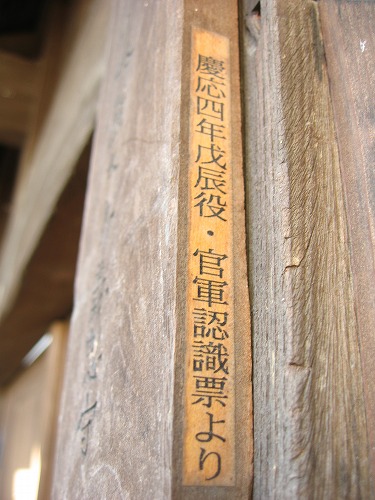 慶応四年戊辰役・官軍認識票より